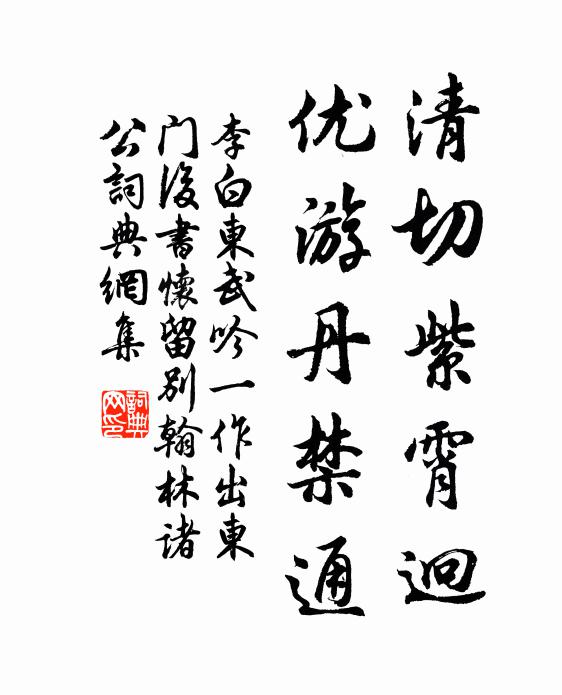 清切紫霄迥
优游丹禁通
李白東武吟一作出東
门後書懷留别翰林诸
公詞典網集
詞典
网印